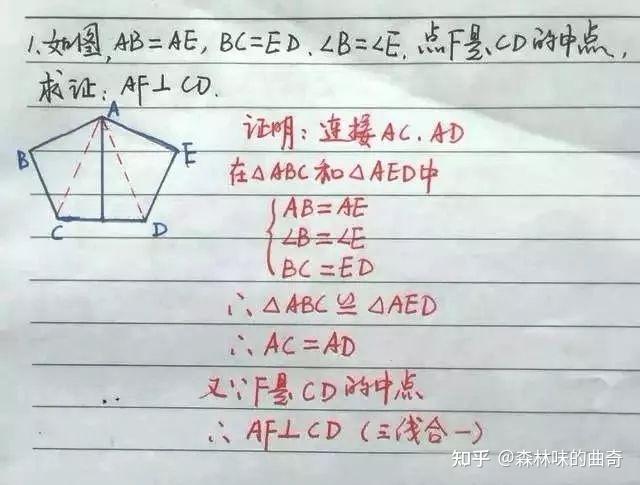 1.如图,AB=AE,BC=ED.∠B=∠E,点F是CD的中点,
求证:AF⊥CD.
A
B
E
C
D
证明:连接AC.AD
在△ABC和△AED中
AB=AE
∠B=∠E
BC=ED
∴△ABC≌△AED
∴AC=AD
又∵F是CD的中点
∴AF⊥CD(三线合一)
知乎 @森林味的曲奇